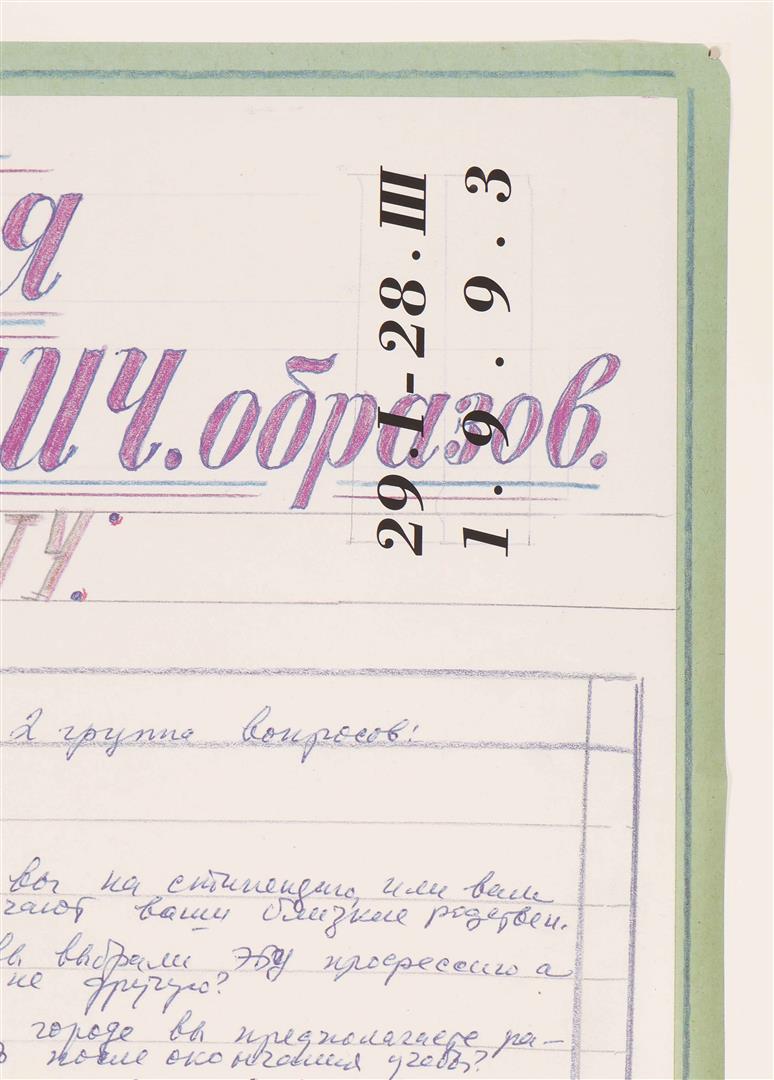 я
ИЧ. образов.
ТУ:
29.I-28.III
1.9.9.3
2 группа вопросов:
вы на стипендию, или вам
чают ваши близкие родствен.
вы выбрали эту профессию а
не другую?
городе вы предполагаете ра-
после окончания учебы?